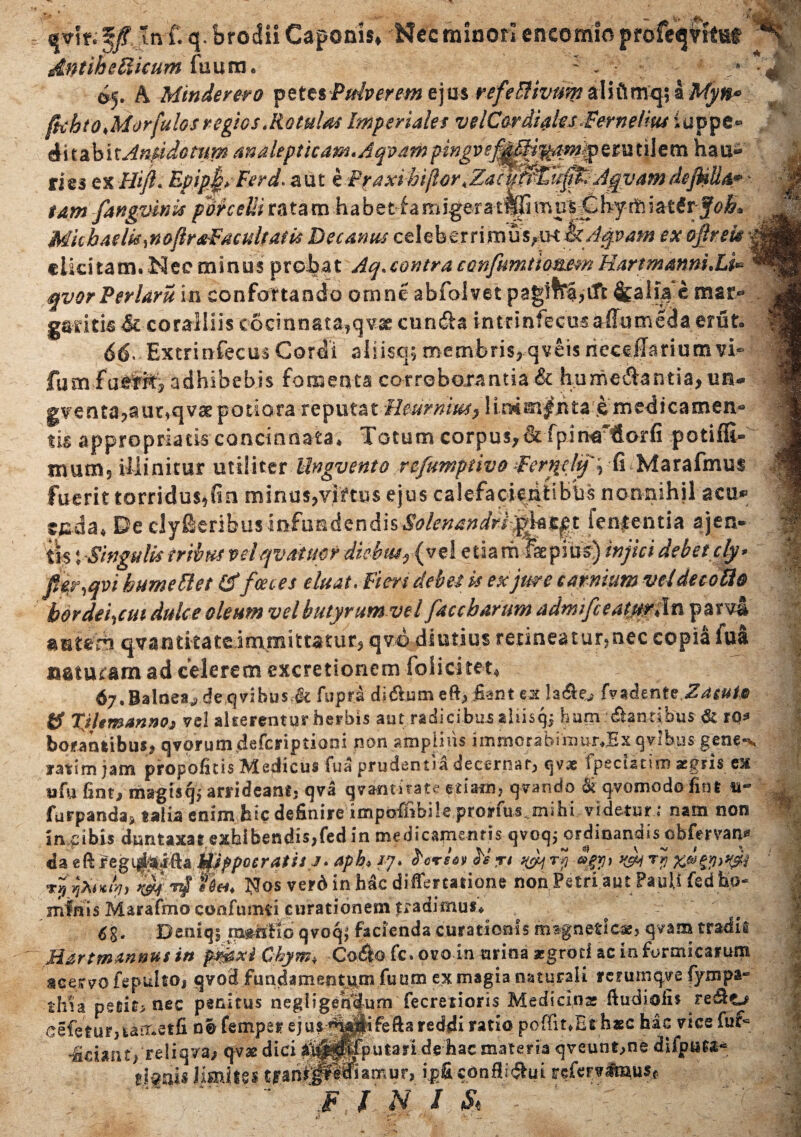 qvir. ℥ß. In f. q. brodii Caponis. Nec minori encomio proseqvitur
Antihecticum suum.
65. A Minderero petes Pulverem ejus refectivum aliumq; à Myn-
sichto, Morsulos regios. Rotulas Imperiales vel Cordiales. Fernelius suppe-
ditabit Antidotum analepticam. Aqvam pingvef perutilem hau-
ries ex Hist. Epiph. Ferd. aut è Praxi histor. Aqvam destilla-
tam sangvinis porcelli ratam habet famigeratissimus Chymiater Joh.
Michaelis, nostræ Facultatis Decanus celeberrimus, ut & Aqvam ex ostreis
elicitam. Nec minus probat Aq. contra consumtionem Hartmanni. Li-
qvor Perlarū in confortando omnē absolvet & alia è mar-
garitis & coralliis cōcinnata, qvæ cuncta intrinsecus assumēda erūt.
66. Extrinsecus Cordi aliisq; membris, qvêis necessarium vi-
sum fuerit, adhibebis fomenta corroborantia & humectantia, un-
gventa, aut, qvæ potiora reputat Heurnius, linimenta è medicamen-
tis appropriatis concinnata. Totum corpus, & spina dorsi potissi-
mum, illinitur utiliter Ungvento resumptivo Fernelij; si Marasmus
fuerit torridus, sin minus, virtus ejus calefacientibus nonnihil acu-
enda. De clysteribus infundendis Solenandri placet sententia ajen-
tis: Singulis tribus vel qvatuor diebus, (vel etiam sæpius) injici debet cly-
ster, qvi humectet & fœces eluat. Fieri debet is ex jure carnium vel decocto
hordei, cui dulce oleum vel butyrum vel saccharum admisceatur. In parvâ
autem qvantitate immittatur, qvò diutius retineatur, nec copiâ suâ
naturam ad celerem excretionem solicitet.
67. Balnea, de qvibus & supra dictum est, fiant ex lacte, svadente Zacuto
& Tilemanno, vel alterentur herbis aut radicibus aliisq; humectantibus & ro-
borantibus, qvorum descriptioni non amplius immorabimur. Ex qvibus gene-
ratim jam propositis Medicus suâ prudentiâ decernat, qvæ speciatim ægris ex
usu sint, magisq; arrideant, qvâ qvantitate etiam, qvando & qvomodo sint u-
surpanda, talia enim hic definire impossibile prorsus mihi videtur: nam non
in cibis duntaxat exhibendis, sed in medicamentis qvoq; ordinandis observan-
da est regula ista Hippocratis 1. aph. 17. δοτέον δέ τι καὶ τῇ ὥρῃ, καὶ τῇ χώρῃ, καὶ
τῇ ἡλικίῃ, καὶ τῷ ἔθει. Nos verò in hâc dissertatione non Petri aut Pauli sed ho-
minis Marasmo consumti curationem tradimus.
68. Deniq; mentio qvoq; facienda curationis magneticæ, qvam tradit
Hartmannus in praxi Chym. Cocto sc. ovo in urina ægroti ac in formicarum
acervo sepulto, qvod fundamentum suum ex magia naturali rerumqve sympa-
thia petit, nec penitus negligendum secretioris Medicinæ studiosis rectè
cēsetur, tametsi nō semper ejus manifesta reddi ratio possit. Et hæc hâc vice suf-
ficiant, reliqva, qvæ dici aut disputari de hac materia qveunt, ne disputa-
tionis limites transgrediamur, ipsi conflictui reservamus.
FINIS.